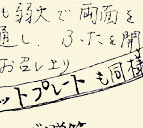 も弱火で両面を
通し、ふたを開
お召し上り
ットプレートも同様